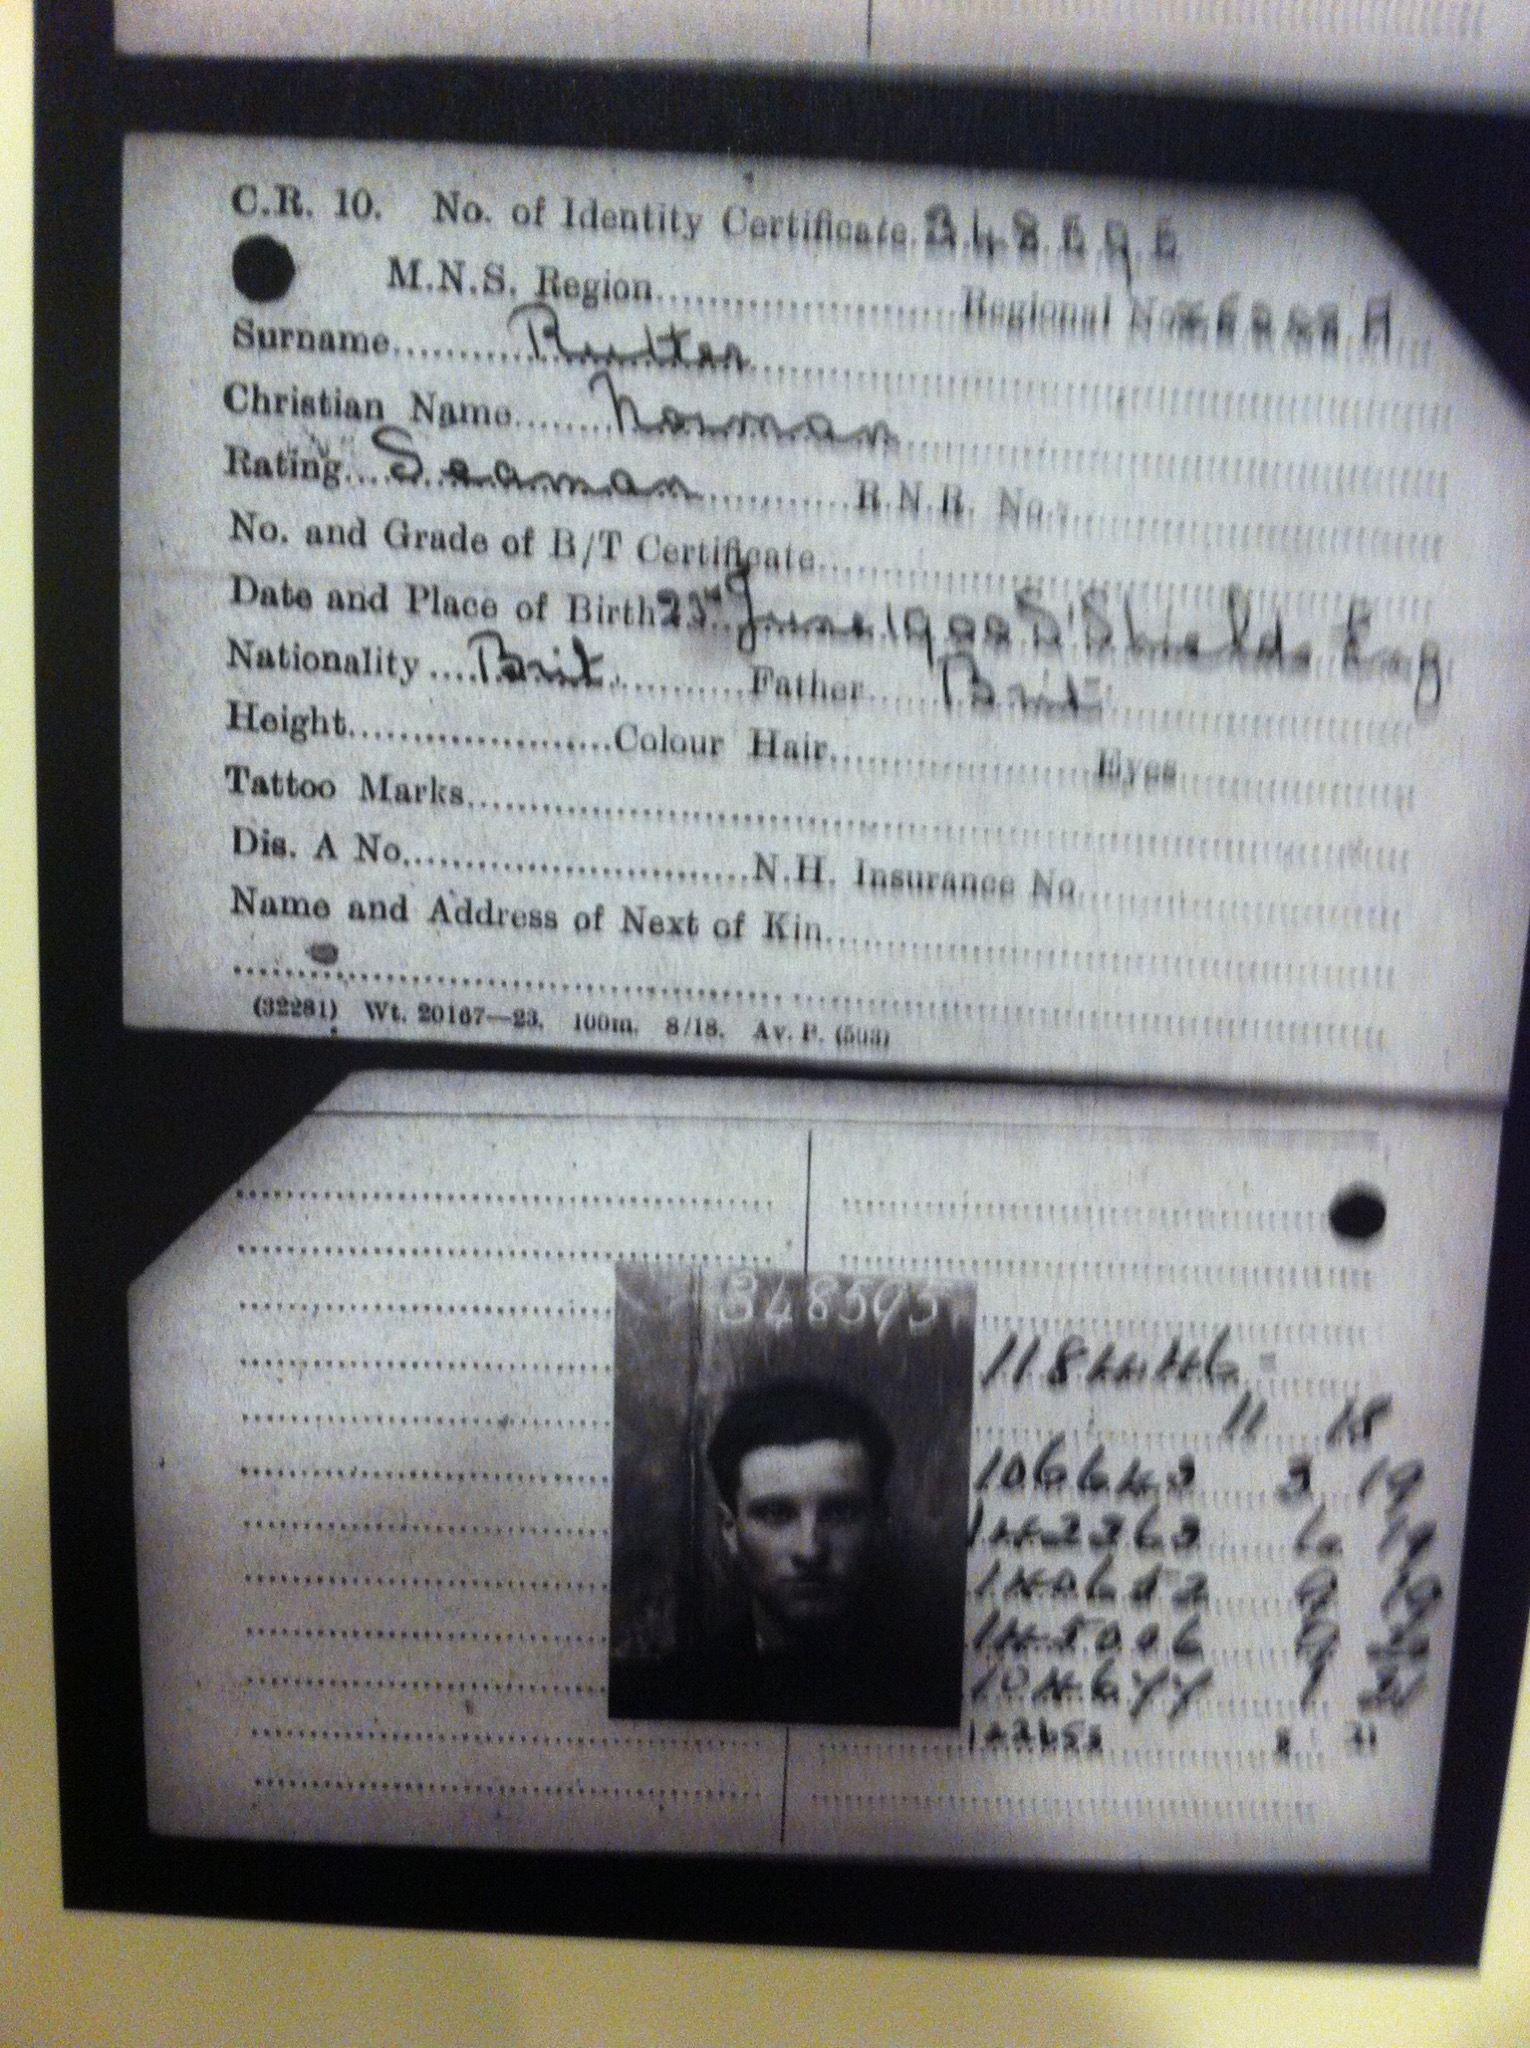 C.R. 10. No. of Identity Certificate 348595
M.N.S. Region Regional No
Surname Rutter
Christian Name Norman
Rating Seaman R.N.R. No.
No. and Grade of B/T Certificate
Date and Place of Birth June 1900 S'Shields Eng
Nationality Brit Father Brit
Height Colour Hair Eyes
Tattoo Marks
Dis. A No. N.H. Insurance No.
Name and Address of Next of Kin
(32281) Wt. 20167—23. 100m. 8/18. Av. P. (503)
348595
118446
11 18
106643 3 19
19
19
145006
1 21
21